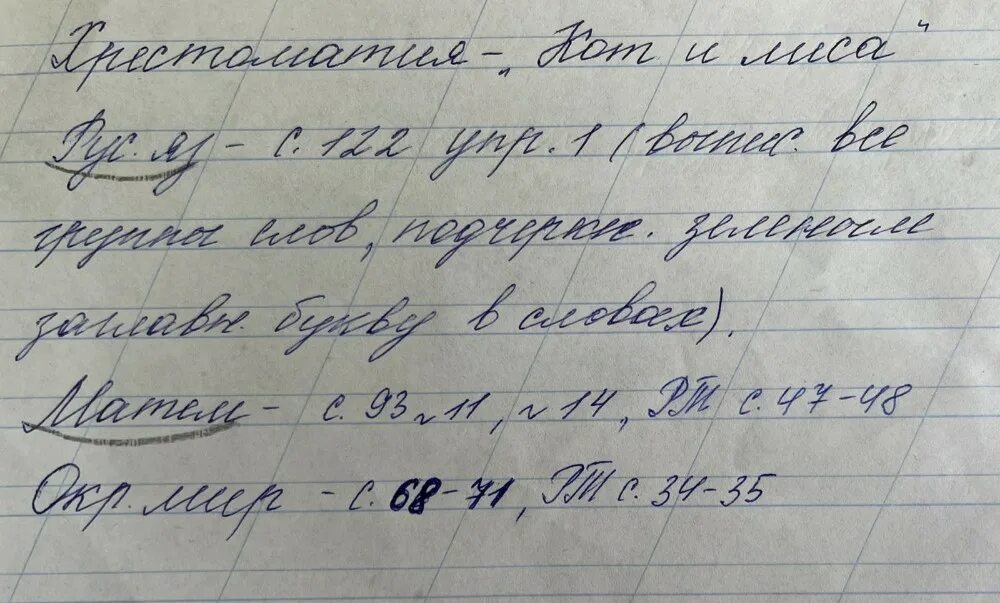 Хрестоматия - „Кот и лиса"
Рус. яз - с. 122 упр. 1 (выпис. все
группы слов, подчеркн. зеленым
заглавн. букву в словах).
Матем - с. 93 №11, №14, РТ с. 47-48
Окр. мир - с. 68-71, РТ с. 34-35